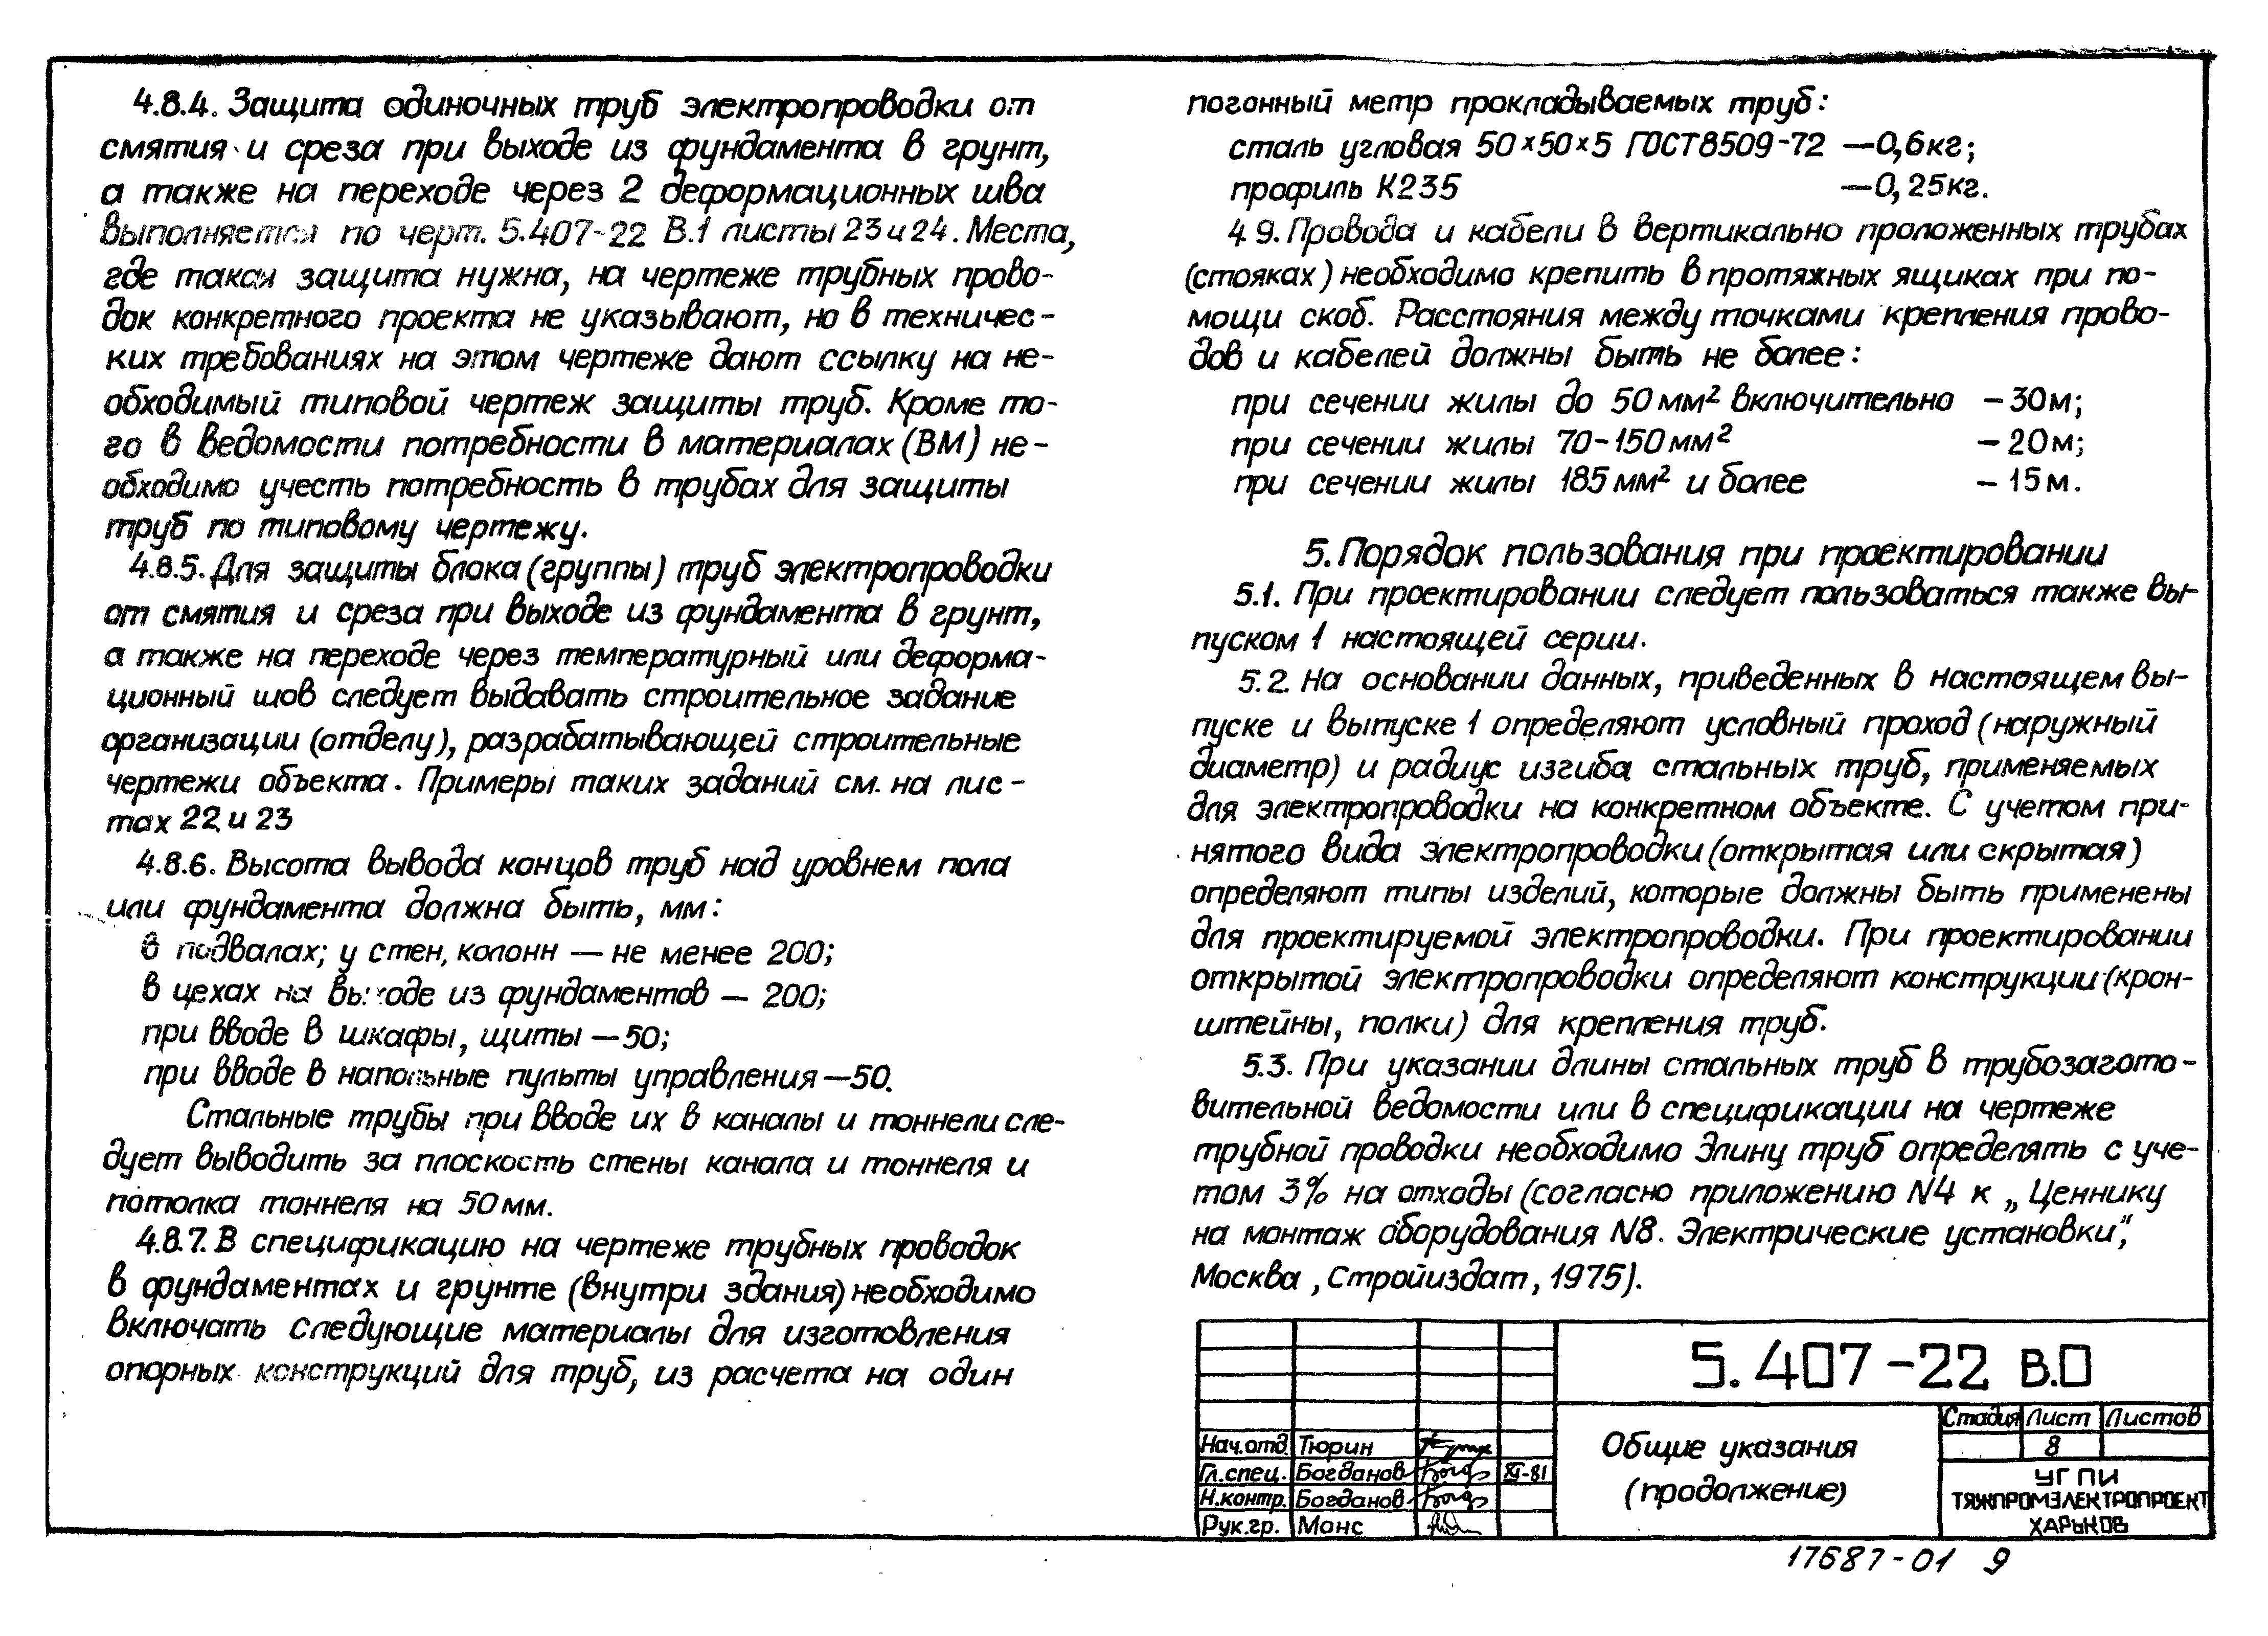 4.8.4. Защита одиночных труб электропроводки от
смятия и среза при выходе из фундамента в грунт,
а также на переходе через 2 деформационных шва
выполняется по черт. 5.407-22 В.1 листы 23 и 24. Места,
где такая защита нужна, на чертеже трубных прово-
док конкретного проекта не указывают, но в техничес-
ких требованиях на этом чертеже дают ссылку на не-
обходимый типовой чертеж защиты труб. Кроме то-
го в ведомости потребности в материалах (ВМ) не-
обходимо учесть потребность в трубах для защиты
труб по типовому чертежу.
4.8.5. Для защиты блока (группы) труб электропроводки
от смятия и среза при выходе из фундамента в грунт,
а также на переходе через температурный или деформа-
ционный шов следует выдавать строительное задание
организации (отделу), разрабатывающей строительные
чертежи объекта. Примеры таких заданий см. на лис-
тах 22 и 23
4.8.6. Высота вывода концов труб над уровнем пола
или фундамента должна быть, мм:
в подвалах; у стен, колонн — не менее 200;
в цехах на выходе из фундаментов — 200;
при вводе в шкафы, щиты — 50;
при вводе в напольные пульты управления — 50.
Стальные трубы при вводе их в каналы и тоннели сле-
дует выводить за плоскость стены канала и тоннеля и
потолка тоннеля на 50 мм.
4.8.7. В спецификацию на чертеже трубных проводок
в фундаментах и грунте (внутри здания) необходимо
включать следующие материалы для изготовления
опорных конструкций для труб, из расчета на один
погонный метр прокладываемых труб:
сталь угловая 50×50×5 ГОСТ 8509-72 — 0,6 кг;
профиль К235 — 0,25 кг.
4.9. Провода и кабели в вертикально проложенных трубах
(стояках) необходимо крепить в протяжных ящиках при по-
мощи скоб. Расстояния между точками крепления прово-
дов и кабелей должны быть не более:
при сечении жилы до 50 мм² включительно — 30 м;
при сечении жилы 70-150 мм² — 20 м;
при сечении жилы 185 мм² и более — 15 м.
5. Порядок пользования при проектировании
5.1. При проектировании следует пользоваться также вы-
пуском 1 настоящей серии.
5.2. На основании данных, приведенных в настоящем вы-
пуске и выпуске 1 определяют условный проход (наружный
диаметр) и радиус изгиба стальных труб, применяемых
для электропроводки на конкретном объекте. С учетом при-
нятого вида электропроводки (открытая или скрытая)
определяют типы изделий, которые должны быть применены
для проектируемой электропроводки. При проектировании
открытой электропроводки определяют конструкции (крон-
штейны, полки) для крепления труб.
5.3. При указании длины стальных труб в трубозагото-
вительной ведомости или в спецификации на чертеже
трубной проводки необходимо длину труб определять с уче-
том 3% на отходы (согласно приложению N4 к „Ценнику
на монтаж оборудования N8. Электрические установки",
Москва, Стройиздат, 1975).
5.407-22 В.0
Стадия Лист Листов
8
Общие указания
(продолжение)
Нач.отд. Тюрин
Гл.спец. Богданов XI-81
Н.контр. Богданов
Рук.гр. Монс
УГПИ
ТЯЖПРОМЭЛЕКТРОПРОЕКТ
ХАРЬКОВ
17687-01 9